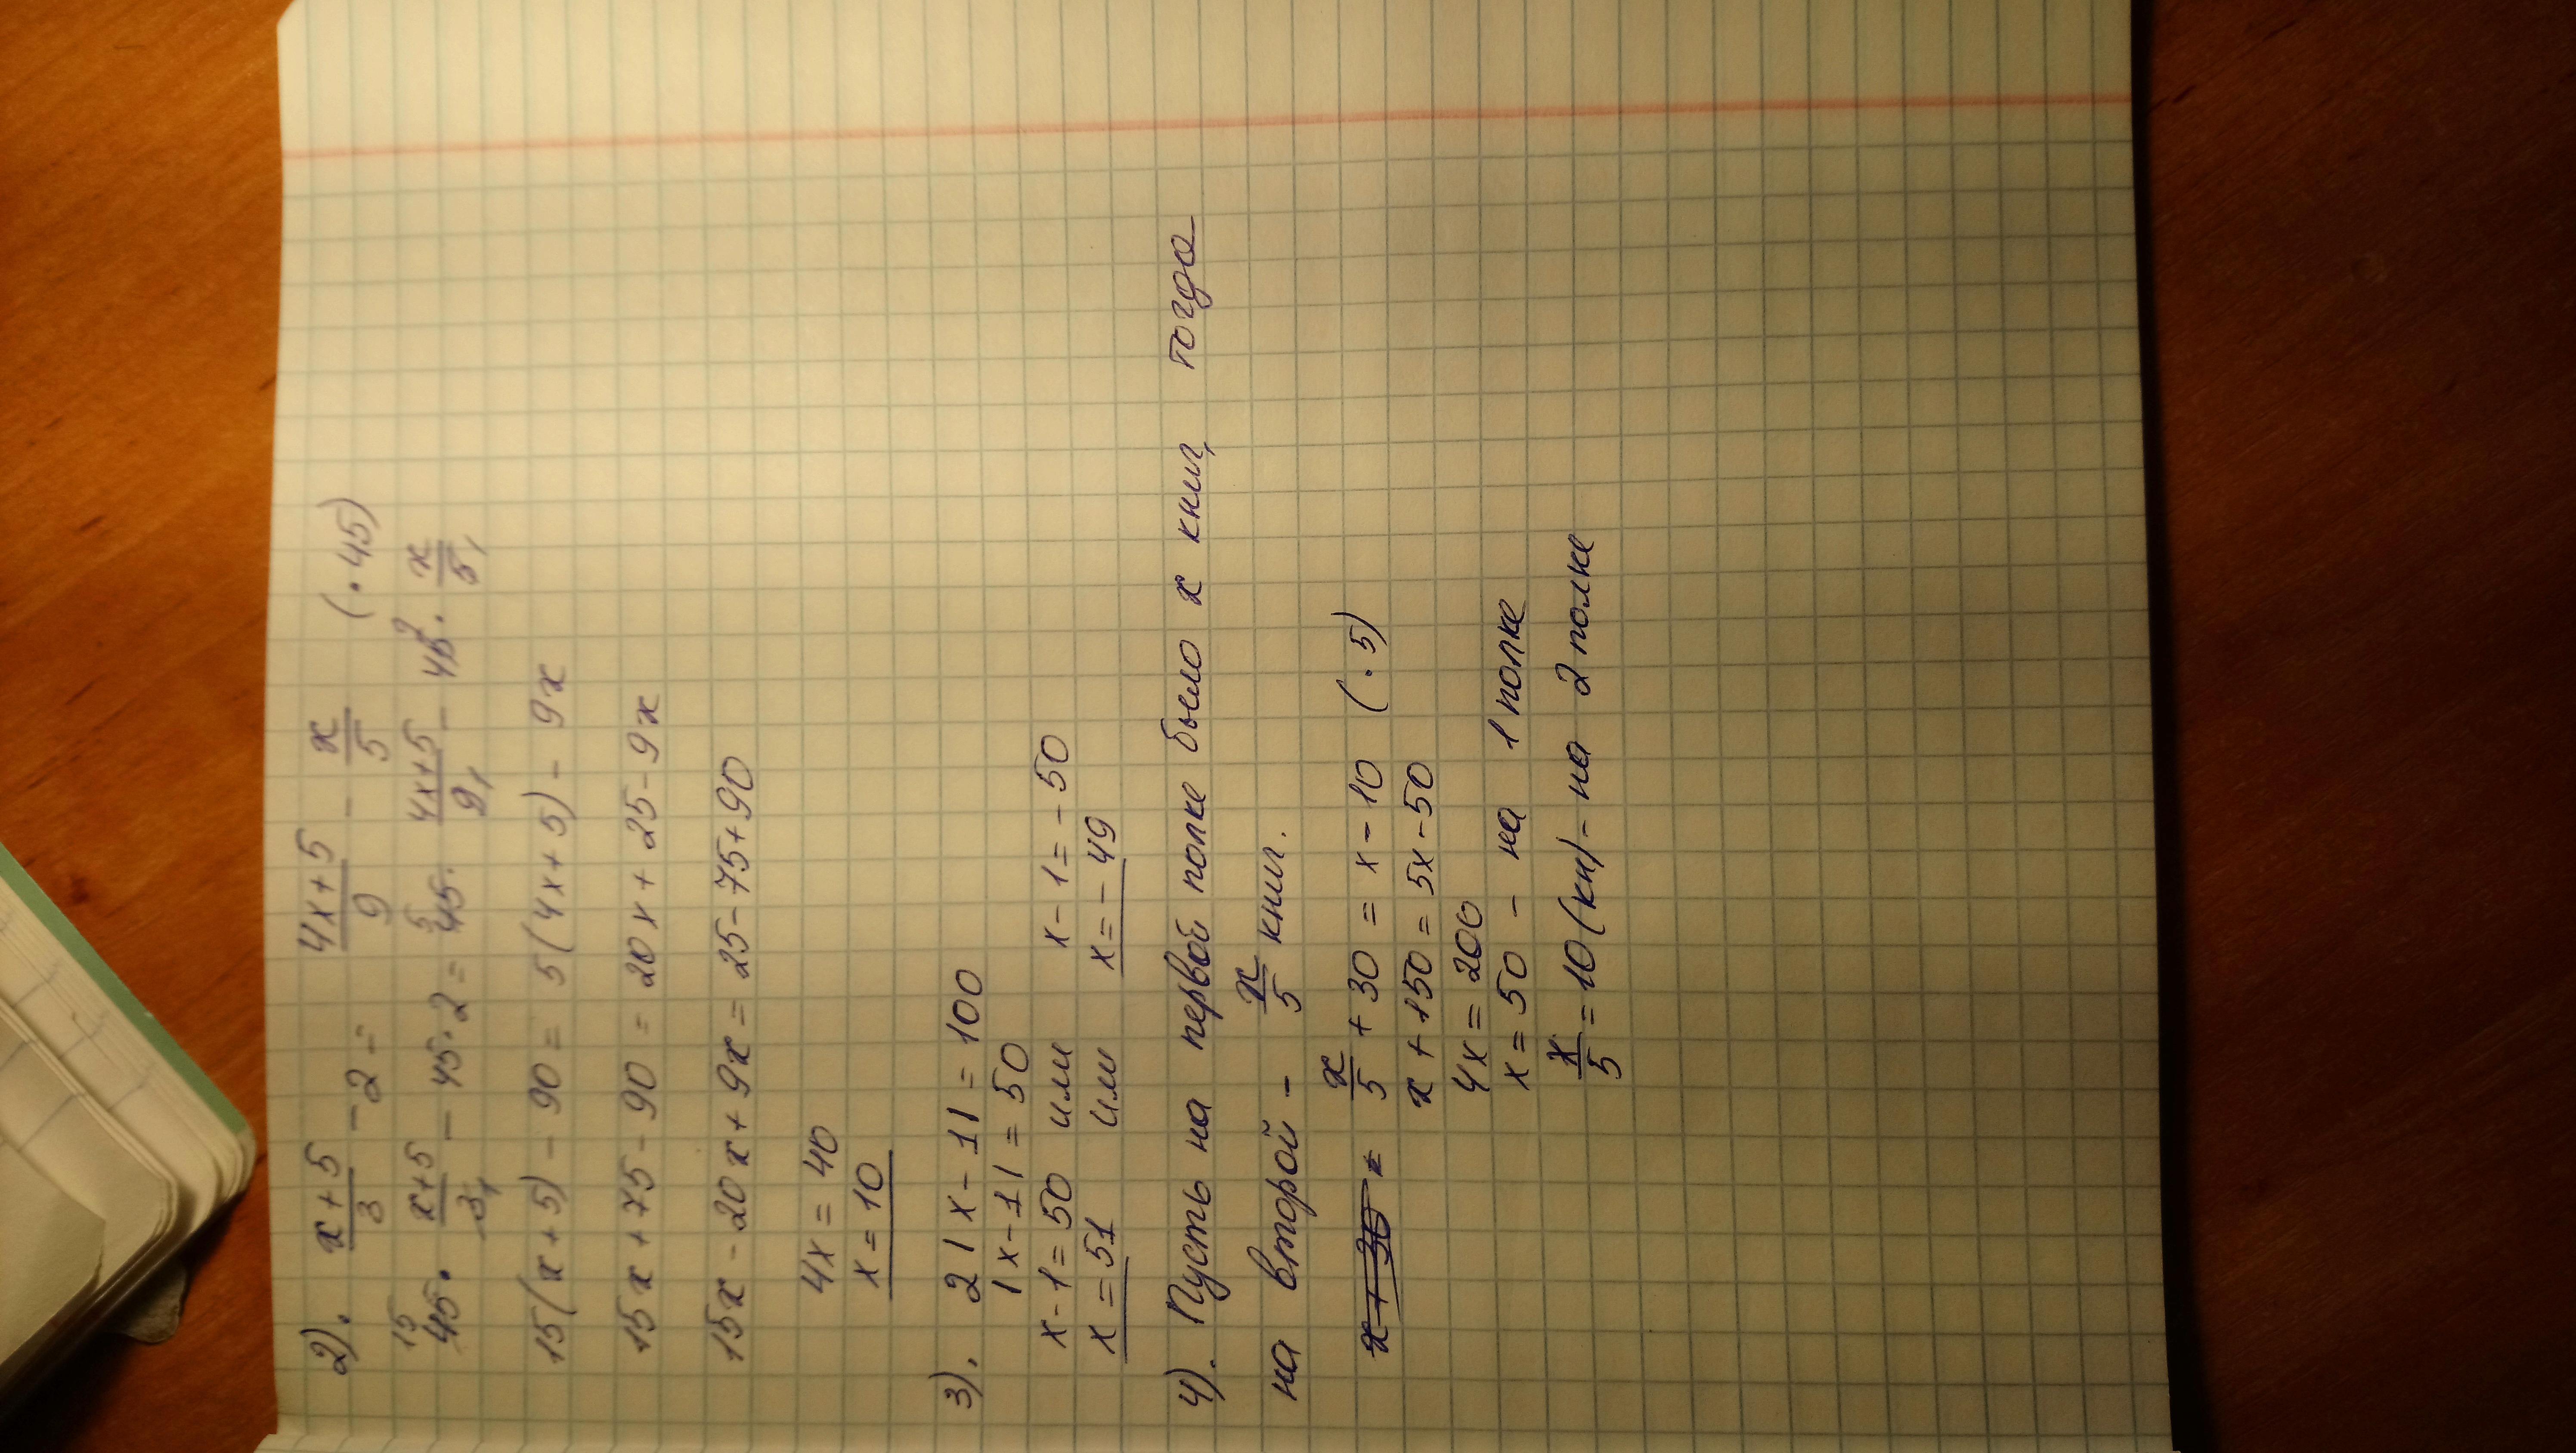 2). (x+5)/3 - 2 = (4x+5)/9 - x/5 (·45)
45¹⁵ · (x+5)/3₁ - 45·2 = 45⁵ · (4x+5)/9₁ - 45⁹ · x/5₁
15(x+5) - 90 = 5(4x+5) - 9x
15x + 75 - 90 = 20x + 25 - 9x
15x - 20x + 9x = 25 - 75 + 90
4x = 40
x = 10
3). 2|x-1| = 100
|x-1| = 50
x-1 = 50 или x-1 = -50
x = 51 или x = -49
4). Пусть на первой полке было x книг, тогда
на второй - x/5 книг.
x + 30 = x/5 + 30 = x - 10 (·5)
x + 150 = 5x - 50
4x = 200
x = 50 - на 1 полке
x/5 = 10 (кн) - на 2 полке